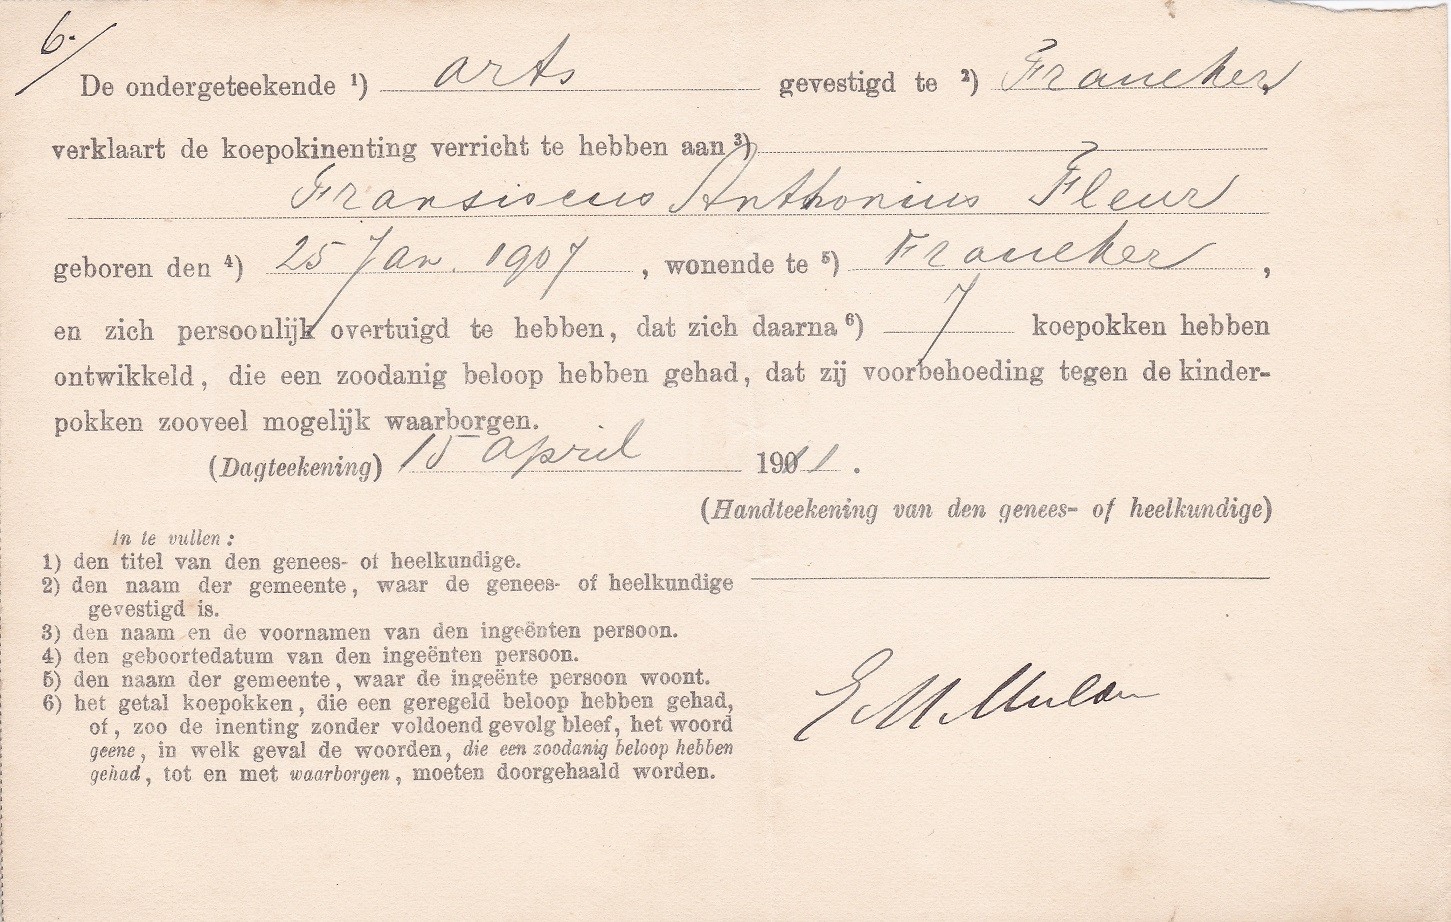 6.
De ondergeteekende 1) arts gevestigd te 2) Franeker,
verklaart de koepokinenting verricht te hebben aan 3)
Fransiscus Anthonius Fleur
geboren den 4) 25 Jan. 1907, wonende te 5) Franeker,
en zich persoonlijk overtuigd te hebben, dat zich daarna 6) 7 koepokken hebben
ontwikkeld, die een zoodanig beloop hebben gehad, dat zij voorbehoeding tegen de kinder-
pokken zooveel mogelijk waarborgen.
(Dagteekening) 15 april 1911.
(Handteekening van den genees- of heelkundige)
In te vullen:
1) den titel van den genees- of heelkundige.
2) den naam der gemeente, waar de genees- of heelkundige
gevestigd is.
3) den naam en de voornamen van den ingeënten persoon.
4) den geboortedatum van den ingeënten persoon.
5) den naam der gemeente, waar de ingeënte persoon woont.
6) het getal koepokken, die een geregeld beloop hebben gehad,
of, zoo de inenting zonder voldoend gevolg bleef, het woord
geene, in welk geval de woorden, die een zoodanig beloop hebben
gehad, tot en met waarborgen, moeten doorgehaald worden.